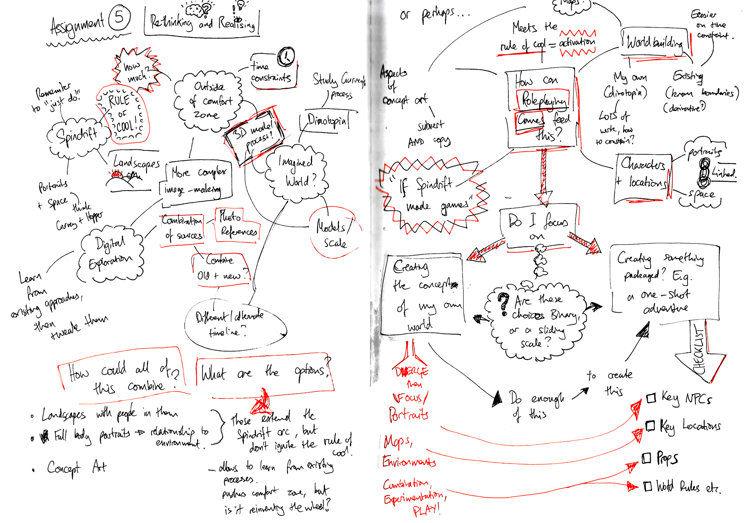 Assignment 5
Re-thinking and Realising
Remember
to "just do".
Spindrift
how
much..
RULE
OF
COOL!
Outside
of comfort
zone
time
constraints
Study current
process
Dinotopia
3D model
process?
Imagined
World?
Models/
scale
Landscapes
Portraits
+ space
More complex
image-making
Digital
Exploration
Learn
from
existing approaches,
then
tweak them
Combination
of sources
Photo
References
Combine
Old + new?
Different/alternate
timeline?
How could all of
this combine?
What are the options?
• Landscapes with people in them
• Full body portraits → relationship to
environment.
These extend the
Spindrift arc, but
don't ignite the rule of
cool.
• Concept Art
– allows to learn from existing
processes.
pushes comfort zone, but
is it reinventing the wheel?
or perhaps...
Maps
Meets the
rule of cool = activation
Aspects
of
concept art
subvert
AND copy
How can
Roleplaying
Games feed
this?
Worldbuilding
Easier
on the
constraint.
My own
(dinotopia)
Lots of
work, how
to constrain?
Existing
(known boundaries)
(derivative?)
Characters
+ locations
portraits
Linked.
space
"If
Spindrift
made games"
Do I focus
on
Creating
the concept
of my own
world
? Are these
choices Binary,
or a sliding
scale?
Creating something
packaged? E.g.
a one-shot
adventure
CHECKLIST
DIVERGE
then
FOCUS/
Portraits
Do enough
of this
to create
this
Maps,
Environments
Combination,
Experimentation,
PLAY!
Key NPCs
Key Locations
Props
World Rules etc.